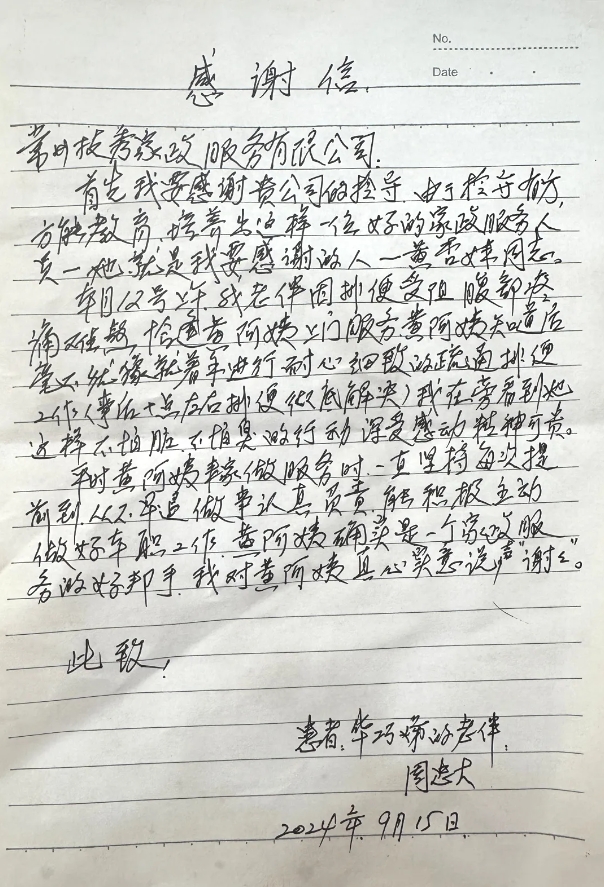 No.
Date
感谢信.
常州技秀家政服务有限公司:
首先我要感谢贵公司的领导,由于领导有方,
方能教育,培养出这样一位好的家政服务人
员一她就是我要感谢的人一黄杏妹同志。
本月12号上午我老伴因排便受阻腹部疼
痛难熬,恰逢黄阿姨上门服务黄阿姨知道后
毫不犹豫就着手进行耐心细致的疏通排便
工作(事后十点左右排便彻底解决)我在旁看到她
这样不怕脏、不怕臭的行动深受感动,精神可贵。
平时黄阿姨来家做服务时,一直坚持每次提
前到,从不早退做事认真负责,能积极主动
做好本职工作,黄阿姨确实是一个家政服
务的好帮手,我对黄阿姨真心实意说声“谢谢”。
此致!
患者:华巧娣的老伴,
周忠大
2024年9月15日